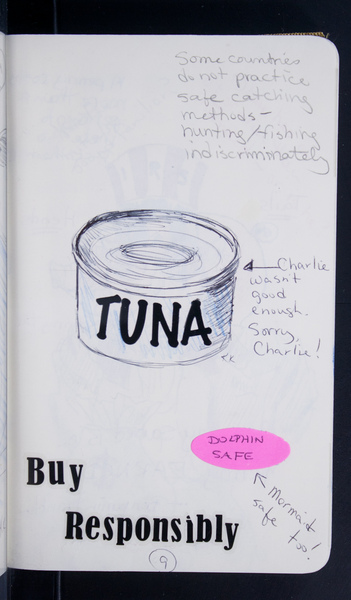 Some countries
do not practice
safe catching
methods -
hunting/fishing
indiscriminately
TUNA
Charlie
wasn't
good
enough.
Sorry,
Charlie!
DOLPHIN
SAFE
mermaid
safe too!
Buy
Responsibly
9